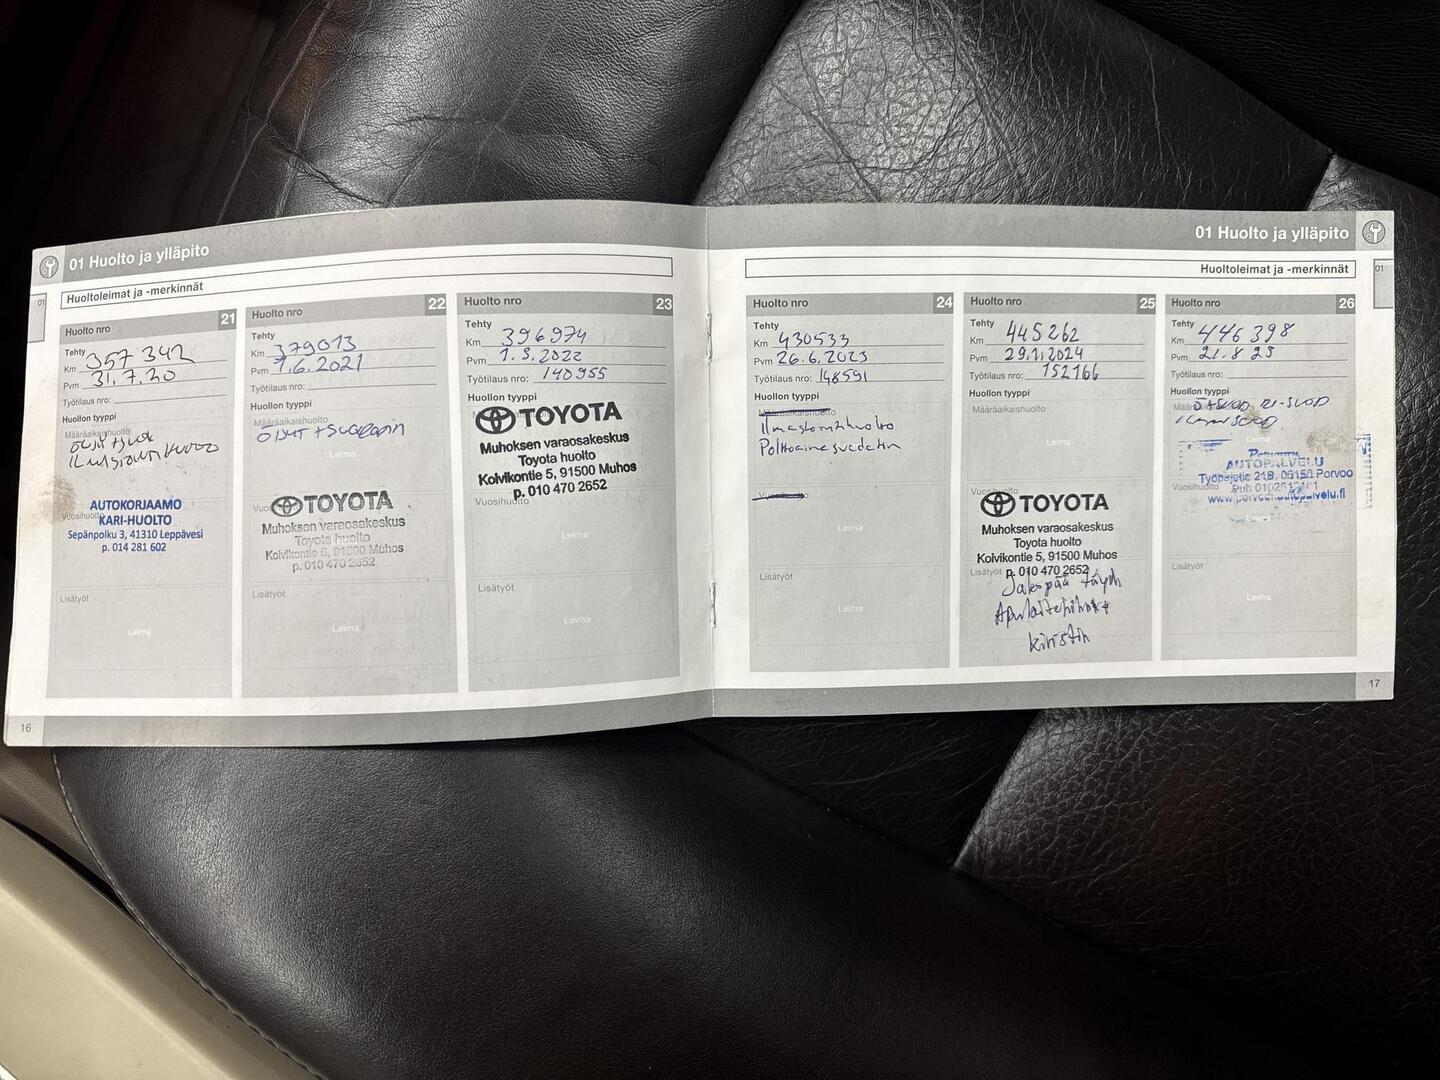 01 Huolto ja ylläpito
01
Huoltoleimat ja -merkinnät
Huolto nro 21
Tehty
Km 357 342
Pvm 31.7.20
Työtilaus nro:
Huollon tyyppi
Määräaikaishuolto
Vuosihuolto
AUTOKORJAAMO
KARI-HUOLTO
Sepänpolku 3, 41310 Leppävesi
p. 014 281 602
Lisätyöt
Leima
Huolto nro 22
Tehty
Km 379013
Pvm 7.6.2021
Työtilaus nro:
Huollon tyyppi
Määräaikaishuolto
Leima
Vuosihuolto
TOYOTA
Muhoksen varaosakeskus
Toyota huolto
Koivikontie 5, 91500 Muhos
p. 010 470 2652
Lisätyöt
Leima
Huolto nro 23
Tehty
Km 396974
Pvm 1.9.2022
Työtilaus nro: 140955
Huollon tyyppi
TOYOTA
Muhoksen varaosakeskus
Toyota huolto
Koivikontie 5, 91500 Muhos
p. 010 470 2652
Vuosihuolto
Leima
Lisätyöt
Leima
16
01 Huolto ja ylläpito
01
Huoltoleimat ja -merkinnät
Huolto nro 24
Tehty
Km 430533
Pvm 26.6.2023
Työtilaus nro: 148591
Huollon tyyppi
Määräaikaishuolto
Ilmastointihuolto
Polttoainesuodatin
Vuosihuolto
Leima
Lisätyöt
Leima
Huolto nro 25
Tehty
Km 445262
Pvm 29.1.2024
Työtilaus nro: 152166
Huollon tyyppi
Määräaikaishuolto
Leima
Vuosihuolto
TOYOTA
Muhoksen varaosakeskus
Toyota huolto
Koivikontie 5, 91500 Muhos
p. 010 470 2652
Lisätyöt
Jakopää täyd
Apulaitehihna +
kiristin
Huolto nro 26
Tehty
Km 446398
Pvm 21.8 25
Työtilaus nro:
Huollon tyyppi
Porvoon
AUTOPALVELU
Työpajatie 21B, 06150 Porvoo
www.porvoonautopalvelu.fi
Vuosihuolto
Leima
Lisätyöt
Leima
17